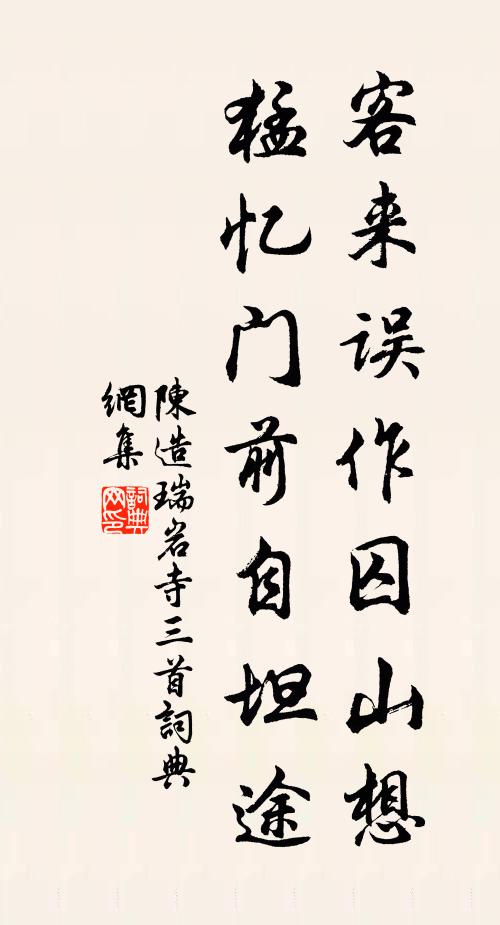 客来误作囚山想
猛忆门前自坦途
陳造瑞岩寺三首詞典
網集
詞典
网印